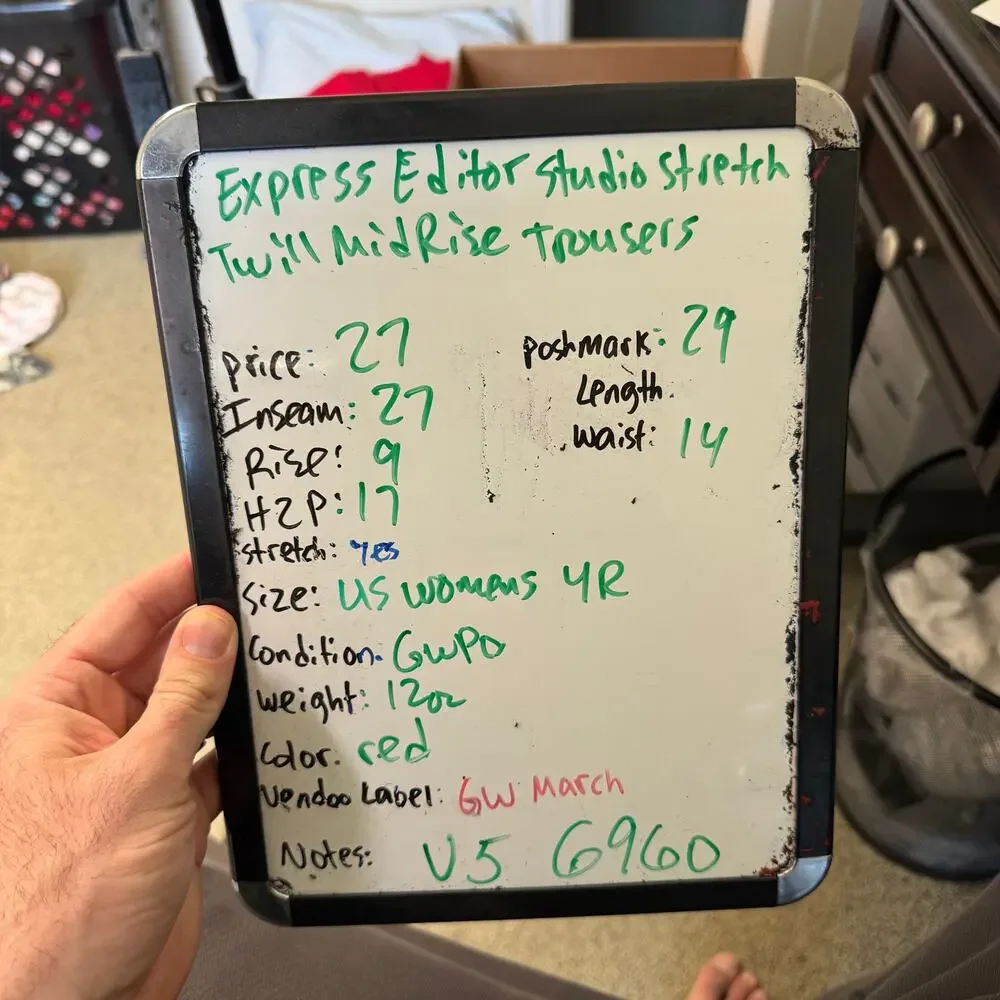 Express Editor Studio Stretch
Twill MidRise Trousers
price: 27
poshmark: 29
Inseam: 27
Length.
Rise: 9
waist: 14
H2P: 17
stretch: yes
Size: US womens 4R
Condition. GWPO
weight: 12oz
Color. red
Vendoo Label: GW March
Notes: V5 6960